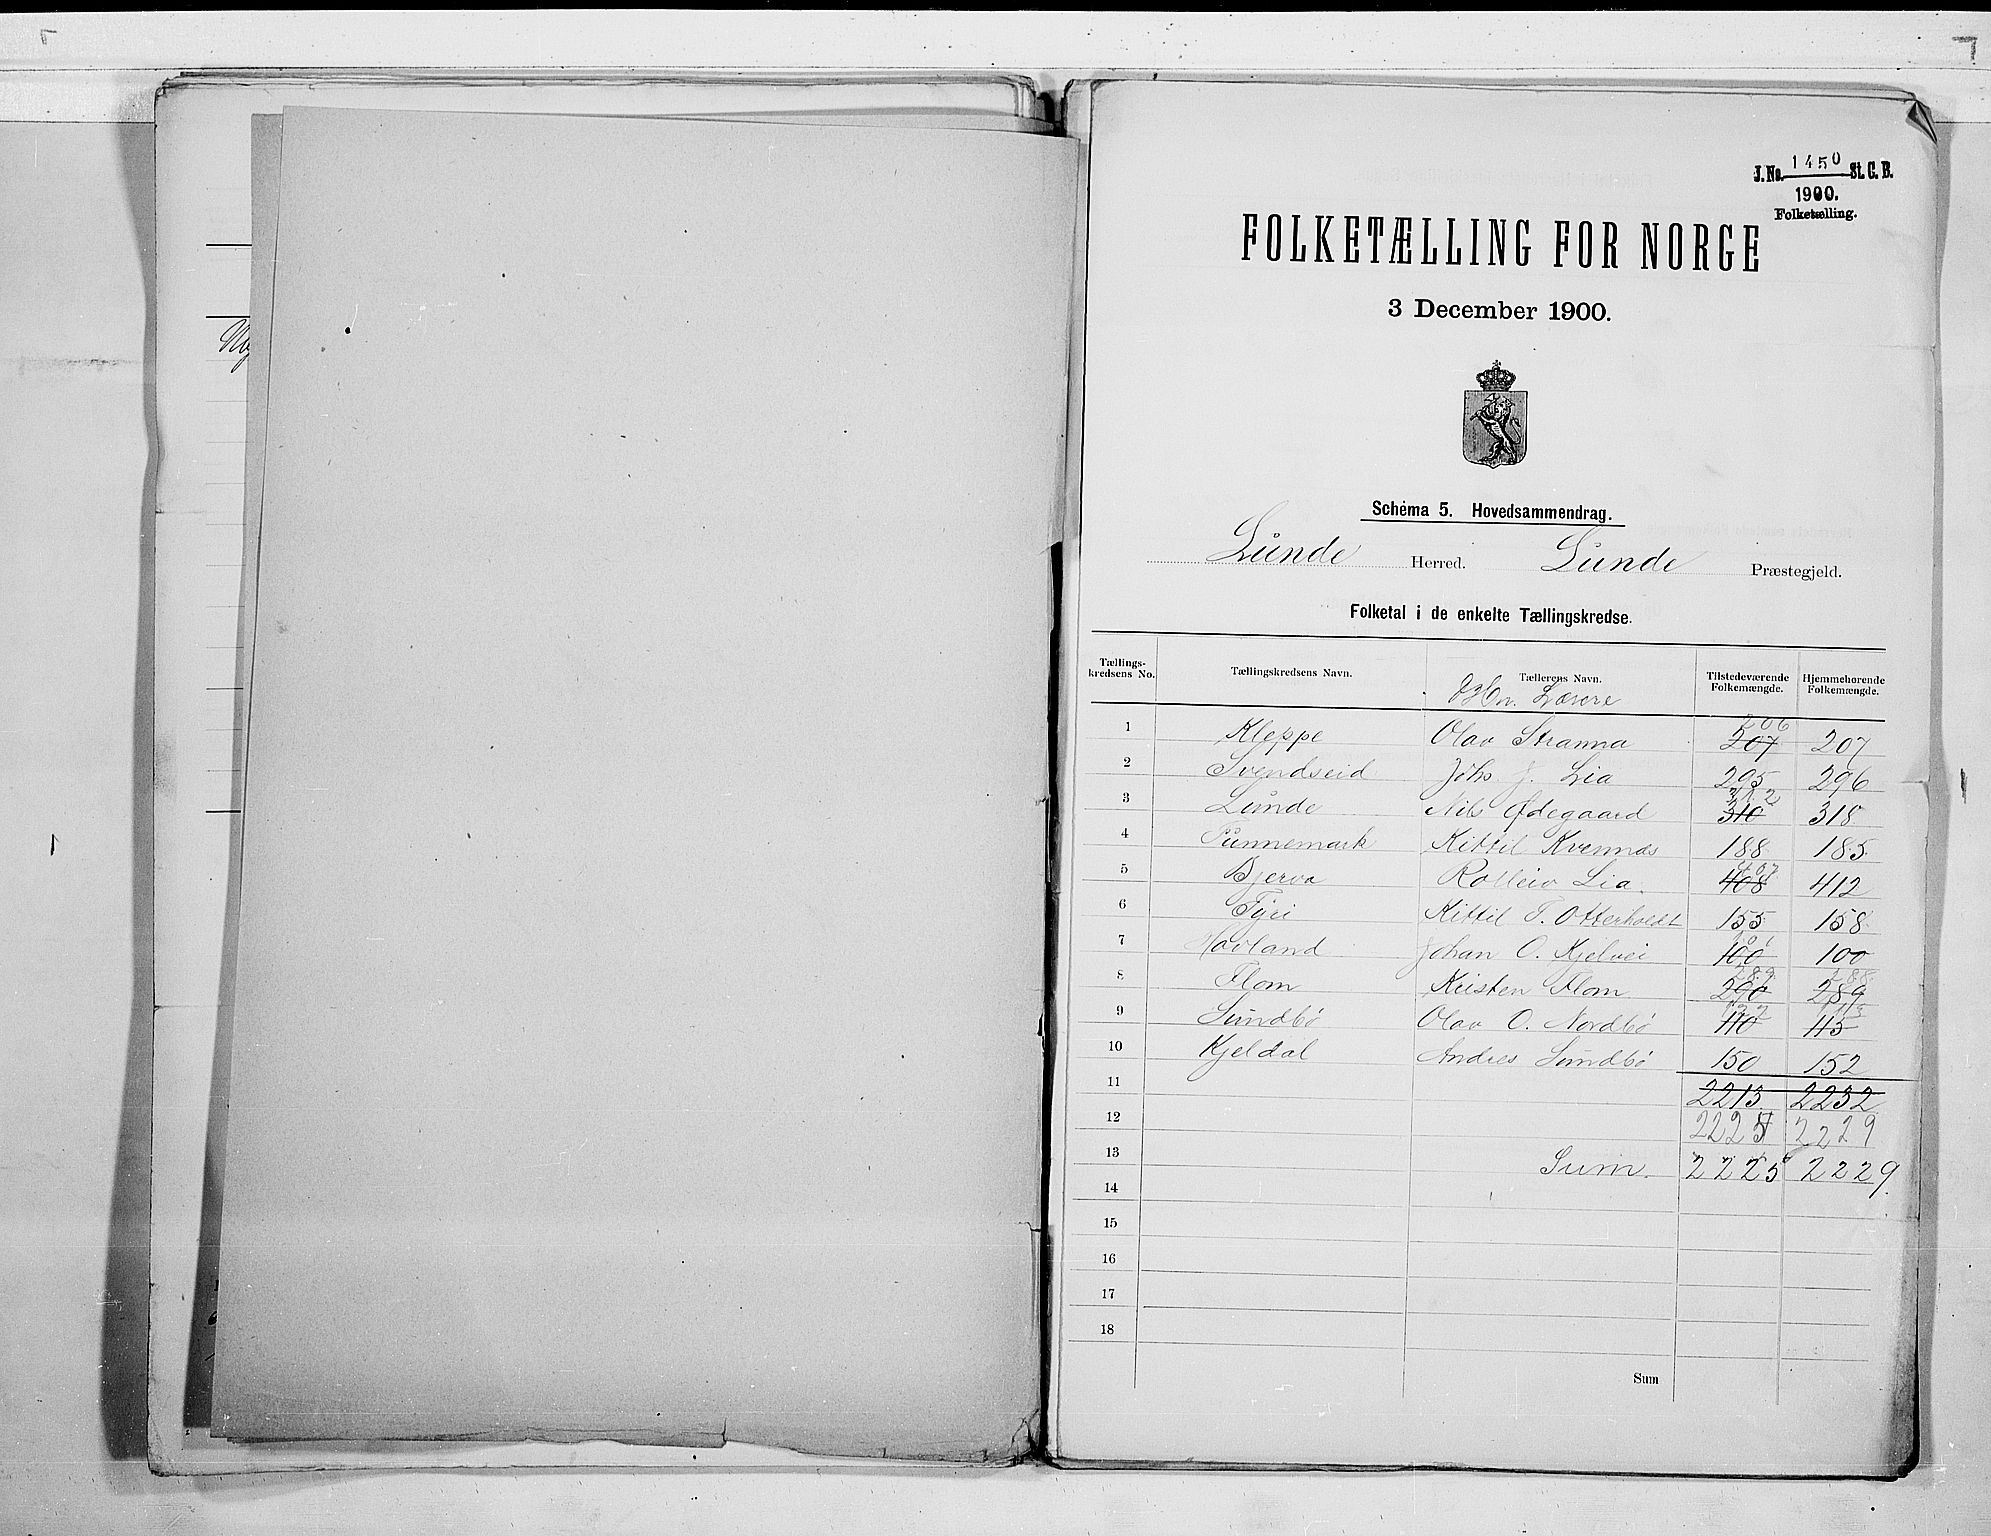 J. No. 1450 St. C. B.
1900.
Folketælling.
FOLKETÆLLING FOR NORGE
3 December 1900.
Schema 5. Hovedsammendrag.
Lunde Herred. Lunde Præstegjeld.
Folketal i de enkelte Tællingskredse.
Tællings-kredsens No. Tællingskredsens Navn. Tællerens Navn. Tilstedeværende Folkemængde. Hjemmehørende Folkemængde.
Hr. Lærere
206
1 Kleppe Olav Stranna 207 207
2 Svendseid Johs. J. Lia 295 296
312
3 Lunde Nils Ødegaard 310 318
4 Tunnemark Kittil Kvennos 188 185
407
5 Bjerva Rolleiv Lia. 408 412
6 Tyri Kittil T. Otterholdt 155 158
101
7 Hovland Johan O. Kjelvei 100 100
289 288
8 Flom Kristen Flom 290 289
122 113
9 Sundbø Olav O. Nordbø 110 115
10 Kjeldal Andres Sundbø 150 152
11 2213 2232
12 2225 2229
13 Sum. 2225 2229.
14
15
16
17
18
Sum